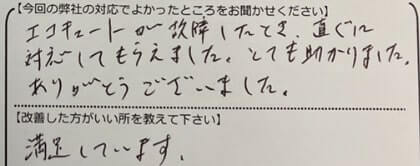 【今回の弊社の対応でよかったところをお聞かせください】
エコキュートが故障したとき、直ぐに
対応してもらえました。とても助かりました。
ありがとうございました。
【改善した方がいい所を教えて下さい】
満足しています。